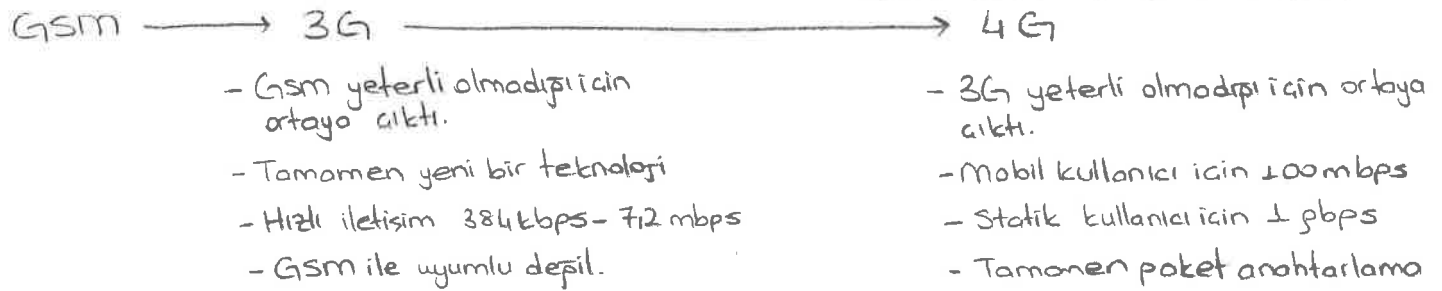 Gsm → 3G → 4G
- Gsm yeterli olmadığı için
ortaya çıktı.
- Tamamen yeni bir teknoloji
- Hızlı iletişim 384 kbps - 7,2 mbps
- Gsm ile uyumlu değil.
- 3G yeterli olmadığı için ortaya
çıktı.
- Mobil kullanıcı için 100 mbps
- Statik kullanıcı için 1 gbps
- Tamamen paket anahtarlama